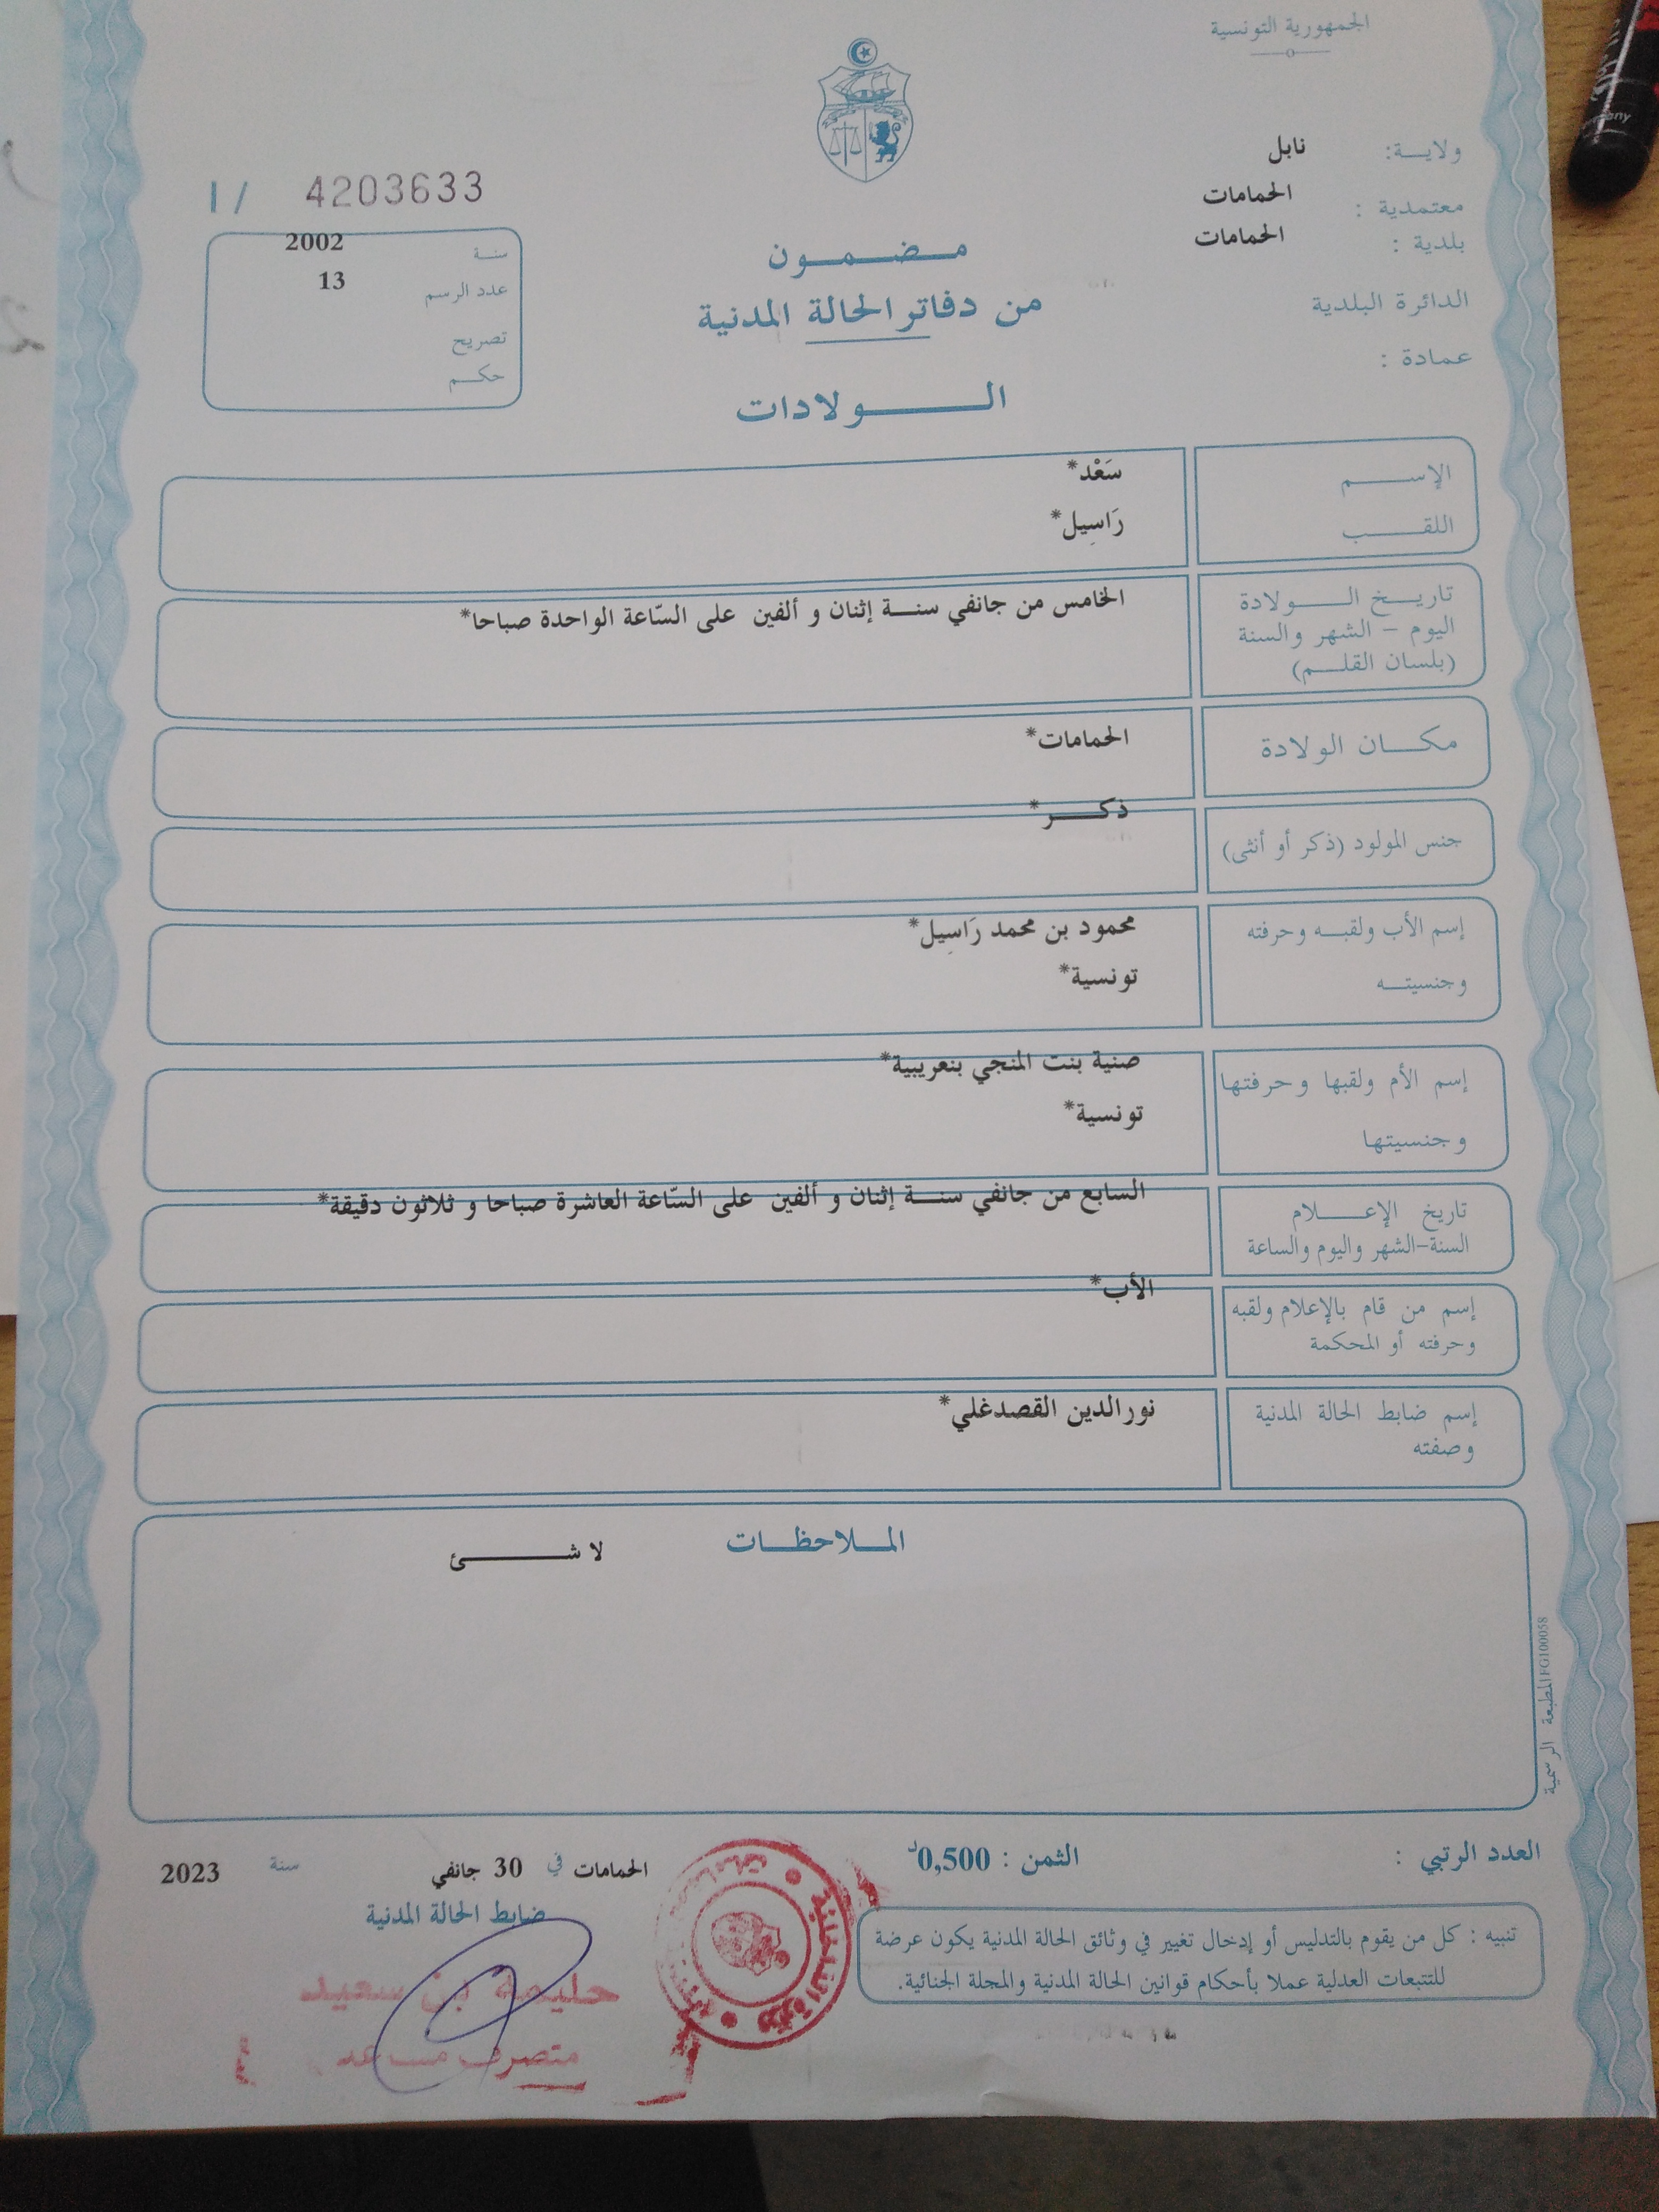 الجمهورية التونسية
ولايـــة: نابل
معتمدية : الحمامات
بلدية : الحمامات
الدائرة البلدية
عمادة :
مـضـمـون
من دفاتر الحالة المدنية
الـولادات
I / 4203633
سنـة 2002
عدد الرسم 13
تصريح
حكـم
الإسـم سَعْد*
اللقـب رَاسِيل*
تاريـخ الـولادة
اليوم - الشهر والسنة
(بلسان القلـم)
الخامس من جانفي سنـة إثنان و ألفين على السّاعة الواحدة صباحا*
مكـان الولادة الحمامات*
جنس المولود (ذكر أو أنثى) ذكـر*
إسم الأب ولقبـه وحرفته محمود بن محمد رَاسِيل*
وجنسيتـه تونسية*
إسم الأم ولقبها وحرفتها صنية بنت المنجي بنعريبية*
وجنسيتها تونسية*
تاريخ الإعـلام
السنة-الشهر واليوم والساعة
السابع من جانفي سنـة إثنان و ألفين على السّاعة العاشرة صباحا و ثلاثون دقيقة*
إسم من قام بالإعلام ولقبه
وحرفته أو المحكمة
الأب*
إسم ضابط الحالة المدنية
وصفته
نورالدين القصدغلي*
الملاحظـات
لا شـئ
المطبعة الرسمية FG100058
العدد الرتبي :
الثمن : 0,500د
الحمامات في 30 جانفي سنة 2023
ضابط الحالة المدنية
حليمة بن سعيد
متصرف
تنبيه : كل من يقوم بالتدليس أو إدخال تغيير في وثائق الحالة المدنية يكون عرضة
للتتبعات العدلية عملا بأحكام قوانين الحالة المدنية والمجلة الجنائية.